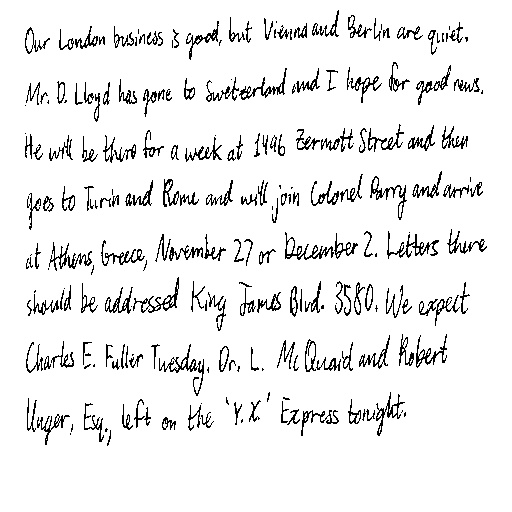 Our London business is good, but Vienna and Berlin are quiet.
Mr. D. Lloyd has gone to Switzerland and I hope for good news.
He will be there for a week at 1496 Zermott Street and then
goes to Turin and Rome and will join Colonel Parry and arrive
at Athens, Greece, November 27 or December 2. Letters there
should be addressed King James Blvd. 3580. We expect
Charles E. Fuller Tuesday. Dr. L. McQuaid and Robert
Unger, Esq., left on the 'Y.X.' Express tonight.